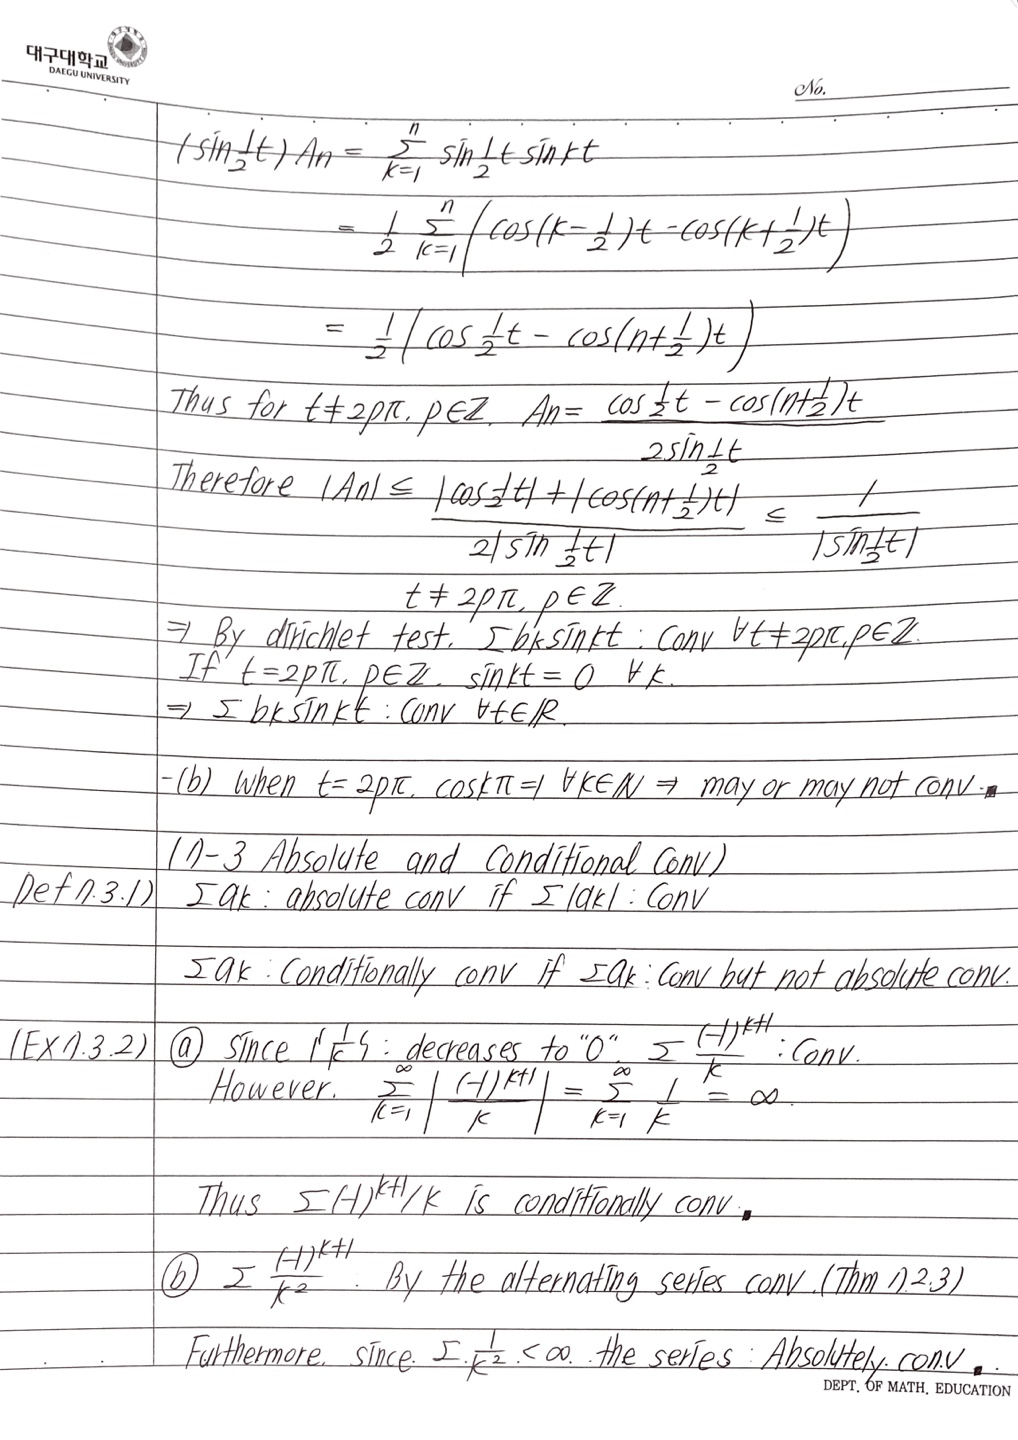 대구대학교
DAEGU UNIVERSITY
No.
(sin 1/2 t) An = Σ_{k=1}^{n} sin 1/2 t sin kt
= 1/2 Σ_{k=1}^{n} (cos(k - 1/2)t - cos(k + 1/2)t)
= 1/2 (cos 1/2 t - cos(n + 1/2)t)
Thus for t ≠ 2pπ, p∈ℤ. An = (cos 1/2 t - cos(n + 1/2)t) / (2 sin 1/2 t)
Therefore |An| ≤ (|cos 1/2 t| + |cos(n + 1/2)t|) / (2|sin 1/2 t|) ≤ 1 / |sin 1/2 t|
t ≠ 2pπ, p∈ℤ.
⇒ By dirichlet test, Σ bk sin kt : Conv ∀t ≠ 2pπ, p∈ℤ.
If t = 2pπ, p∈ℤ. sin kt = 0 ∀k.
⇒ Σ bk sin kt : Conv ∀t∈ℝ.
-(b) When t = 2pπ, cos kπ = 1 ∀k∈ℕ ⇒ may or may not conv.
(7-3 Absolute and Conditional Conv)
Def 7.3.1) Σak : absolute conv if Σ|ak| : Conv
Σak : Conditionally conv if Σak : Conv but not absolute conv.
(Ex 7.3.2) ⓐ Since {1/k} : decreases to "0". Σ (-1)^{k+1}/k : Conv.
However. Σ_{k=1}^{∞} |(-1)^{k+1}/k| = Σ_{k=1}^{∞} 1/k = ∞.
Thus Σ(-1)^{k+1}/k is conditionally conv.
ⓑ Σ (-1)^{k+1}/k². By the alternating series conv. (Thm 7.2.3)
Furthermore, since Σ 1/k² < ∞. the series : Absolutely conv.
DEPT. OF MATH. EDUCATION